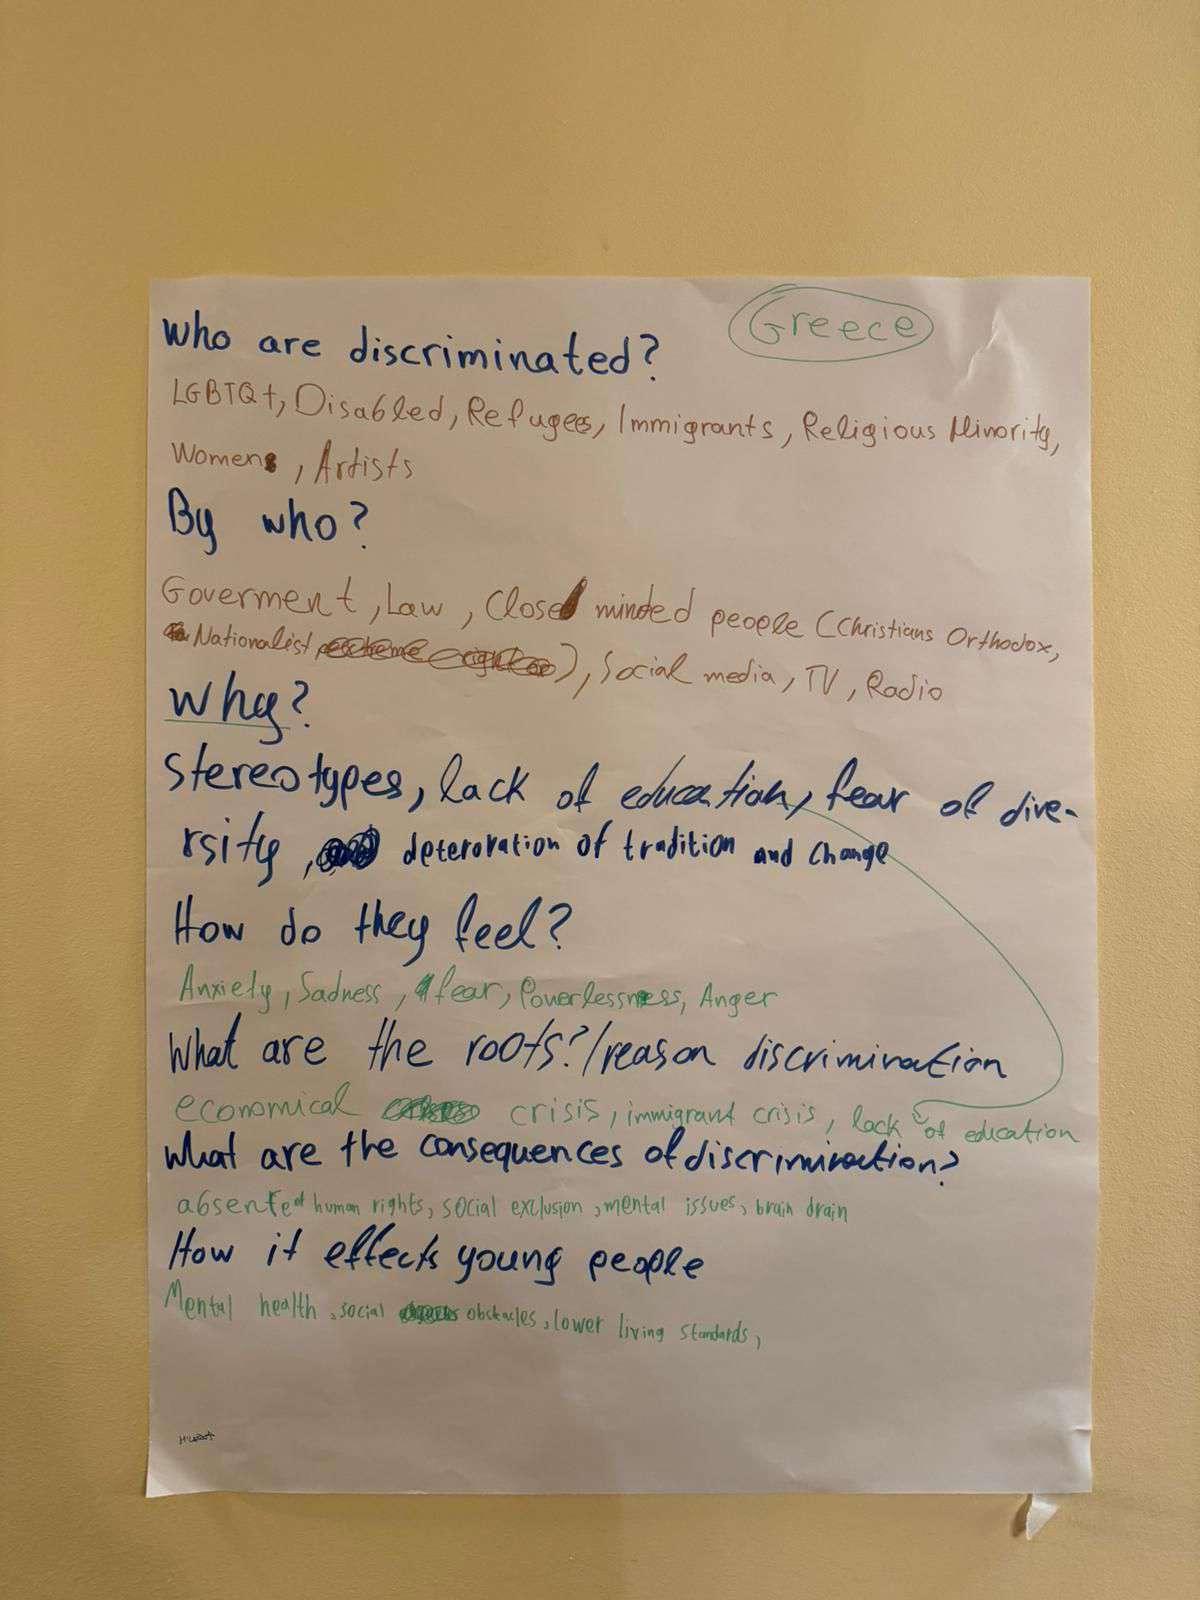 Greece
Who are discriminated?
LGBTQ+, Disabled, Refugees, Immigrants, Religious Minority,
Womens, Artists
By who?
Goverment, Law, Closed minded people (Christians Orthodox,
Nationalist extreme right), Social media, TV, Radio
Why?
Stereotypes, lack of education, fear of dive-
rsity, deteroration of tradition and change
How do they feel?
Anxiety, Sadness, fear, Powerlessness, Anger
What are the roots?/reason discrimination
economical crisis, immigrant crisis, lack of education
What are the consequences of discrimination?
absent of human rights, social exclusion, mental issues, brain drain
How it effects young people
Mental health, social obstacles, lower living standards,